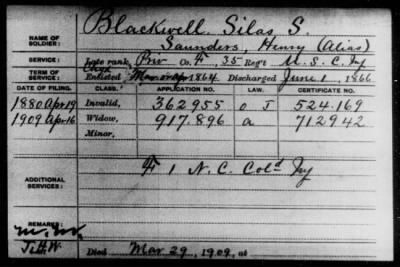 NAME OF SOLDIER: Blackwell, Silas S.
Saunders, Henry (Alias)
SERVICE: Late rank, Priv Co. F, 35 Reg't U.S.C. Inf
TERM OF SERVICE: Enlisted Mar or Apr 1864 Discharged June 1, 1866
DATE OF FILING. CLASS. APPLICATION NO. LAW. CERTIFICATE NO.
1880 Apr 19 Invalid, 362955 o J 524.169
1909 Apr 16 Widow, 917.896 a 712942
Minor,
ADDITIONAL SERVICES: F 1 N.C. Cold Inf
REMARKS:
Died Mar 29, 1909, at